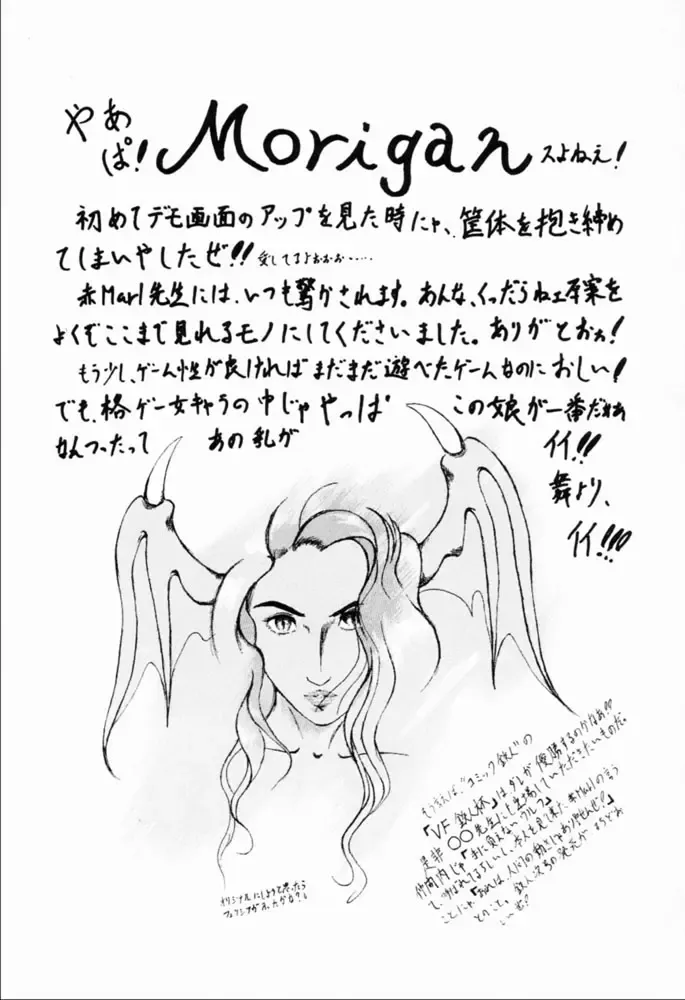 やあ
ぱ! Morigan スよねえ!
初めてデモ画面のアップを見た時にゃ、筐体を抱き締め
てしまいやしたぜ!! 愛してるよおおお……
赤Marl先生には、いつも驚かされます。あんな、くっだらねェ原案を
よくぞここまで見れるモノにしてくださいました。ありがとおォ!
もう少し、ゲーム性が良ければまだまだ遊べたゲームなのにおしい!
でも、格ゲー女キャラの中じゃやっぱ この娘が一番だねぇ
なんつったって あの乳が イイ!!
舞より、
イイ!!!
もうすぐ"コミック鉄人"の
「VF鉄人杯」は、ダレが優勝するのかなあ!!
是非〇〇先生にも出場していただきたいものだ。
仲間内じゃ「まに負えないウルフ」
て、呼ばれてるらしいし、本人を見て来た赤Marlの言う
ことにゃ「あれは、人間の動きじゃありやせんぜ!」
とのこと。鉄人たちの発売が まちどお
しいぜ!
オリジナルにしようと思ったら